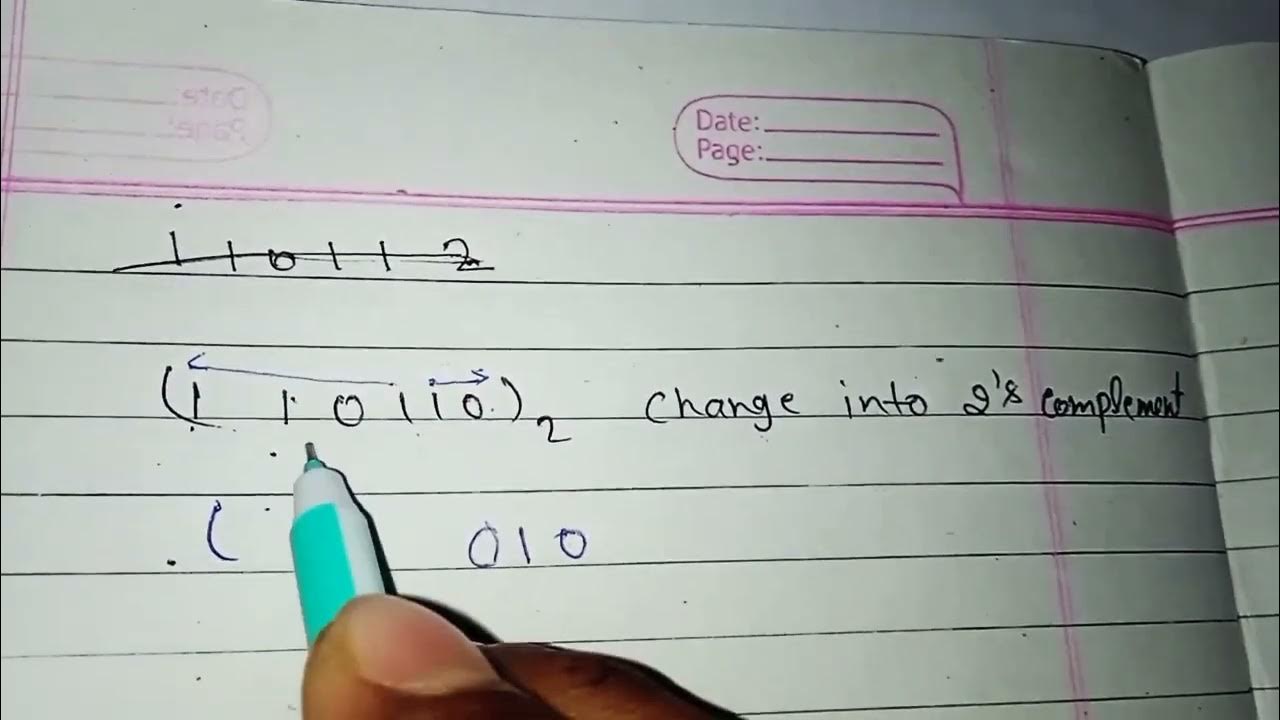 Date:
Page:
1 1 0 1 1 2
(1 1 0 1 1 0)2 change into 2's complement
( 0 1 0